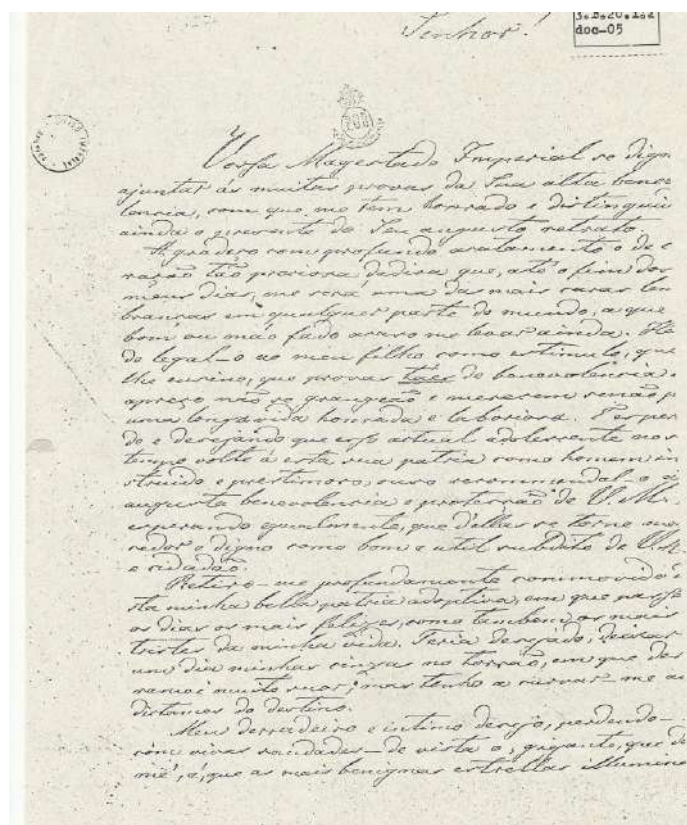 Senhor!
3.B.20.1.2
doc-05
Vossa Magestade Imperial se dign
ajuntar ás muitas provas da Sua alta bene
lencia, com que me tem honrado e distinguid
ainda o presente do Seu augusto retrato.
Agradeço com profundo acatamento o de c
ração tão preciosa dadiva que, até o fim dos
meus dias, me será uma das mais caras lem
branças em qualquer parte do mundo, a que
bom ou máo fado acaso me levar ainda. He
de legal-o ao meu filho como estimulo, que
lhe ensine, que provas taes de benevolencia e
apreço não se grangeão e merecem senão p
uma longa vida honrada e laboriosa. Esperan
do e desejando que esse actual adolescente com
tempo volte á esta sua patria como homem in
struido e prestimoso, ouso recommendal-o á
augusta benevolencia e protecção de V. M.
esperando igualmente, que d'ellas se torne me
recedor e digno como bom e util subdito de V. M.
e cidadão.
Retiro-me profundamente commovido
sta minha bella patria adoptiva, em que passe
os dias os mais felizes, como tambem os mais
tristes da minha vida. Teria desejado, deixar
um dia minhas cinzas no torrão, em que der
ramei muito suor; mas tenho a curvar-me ao
dictames do destino.
Meu derradeiro e intimo desejo, perdendo-
com vivas saudades - de vista o, gigante, que do
me', é, que as mais benignas estrellas illumine